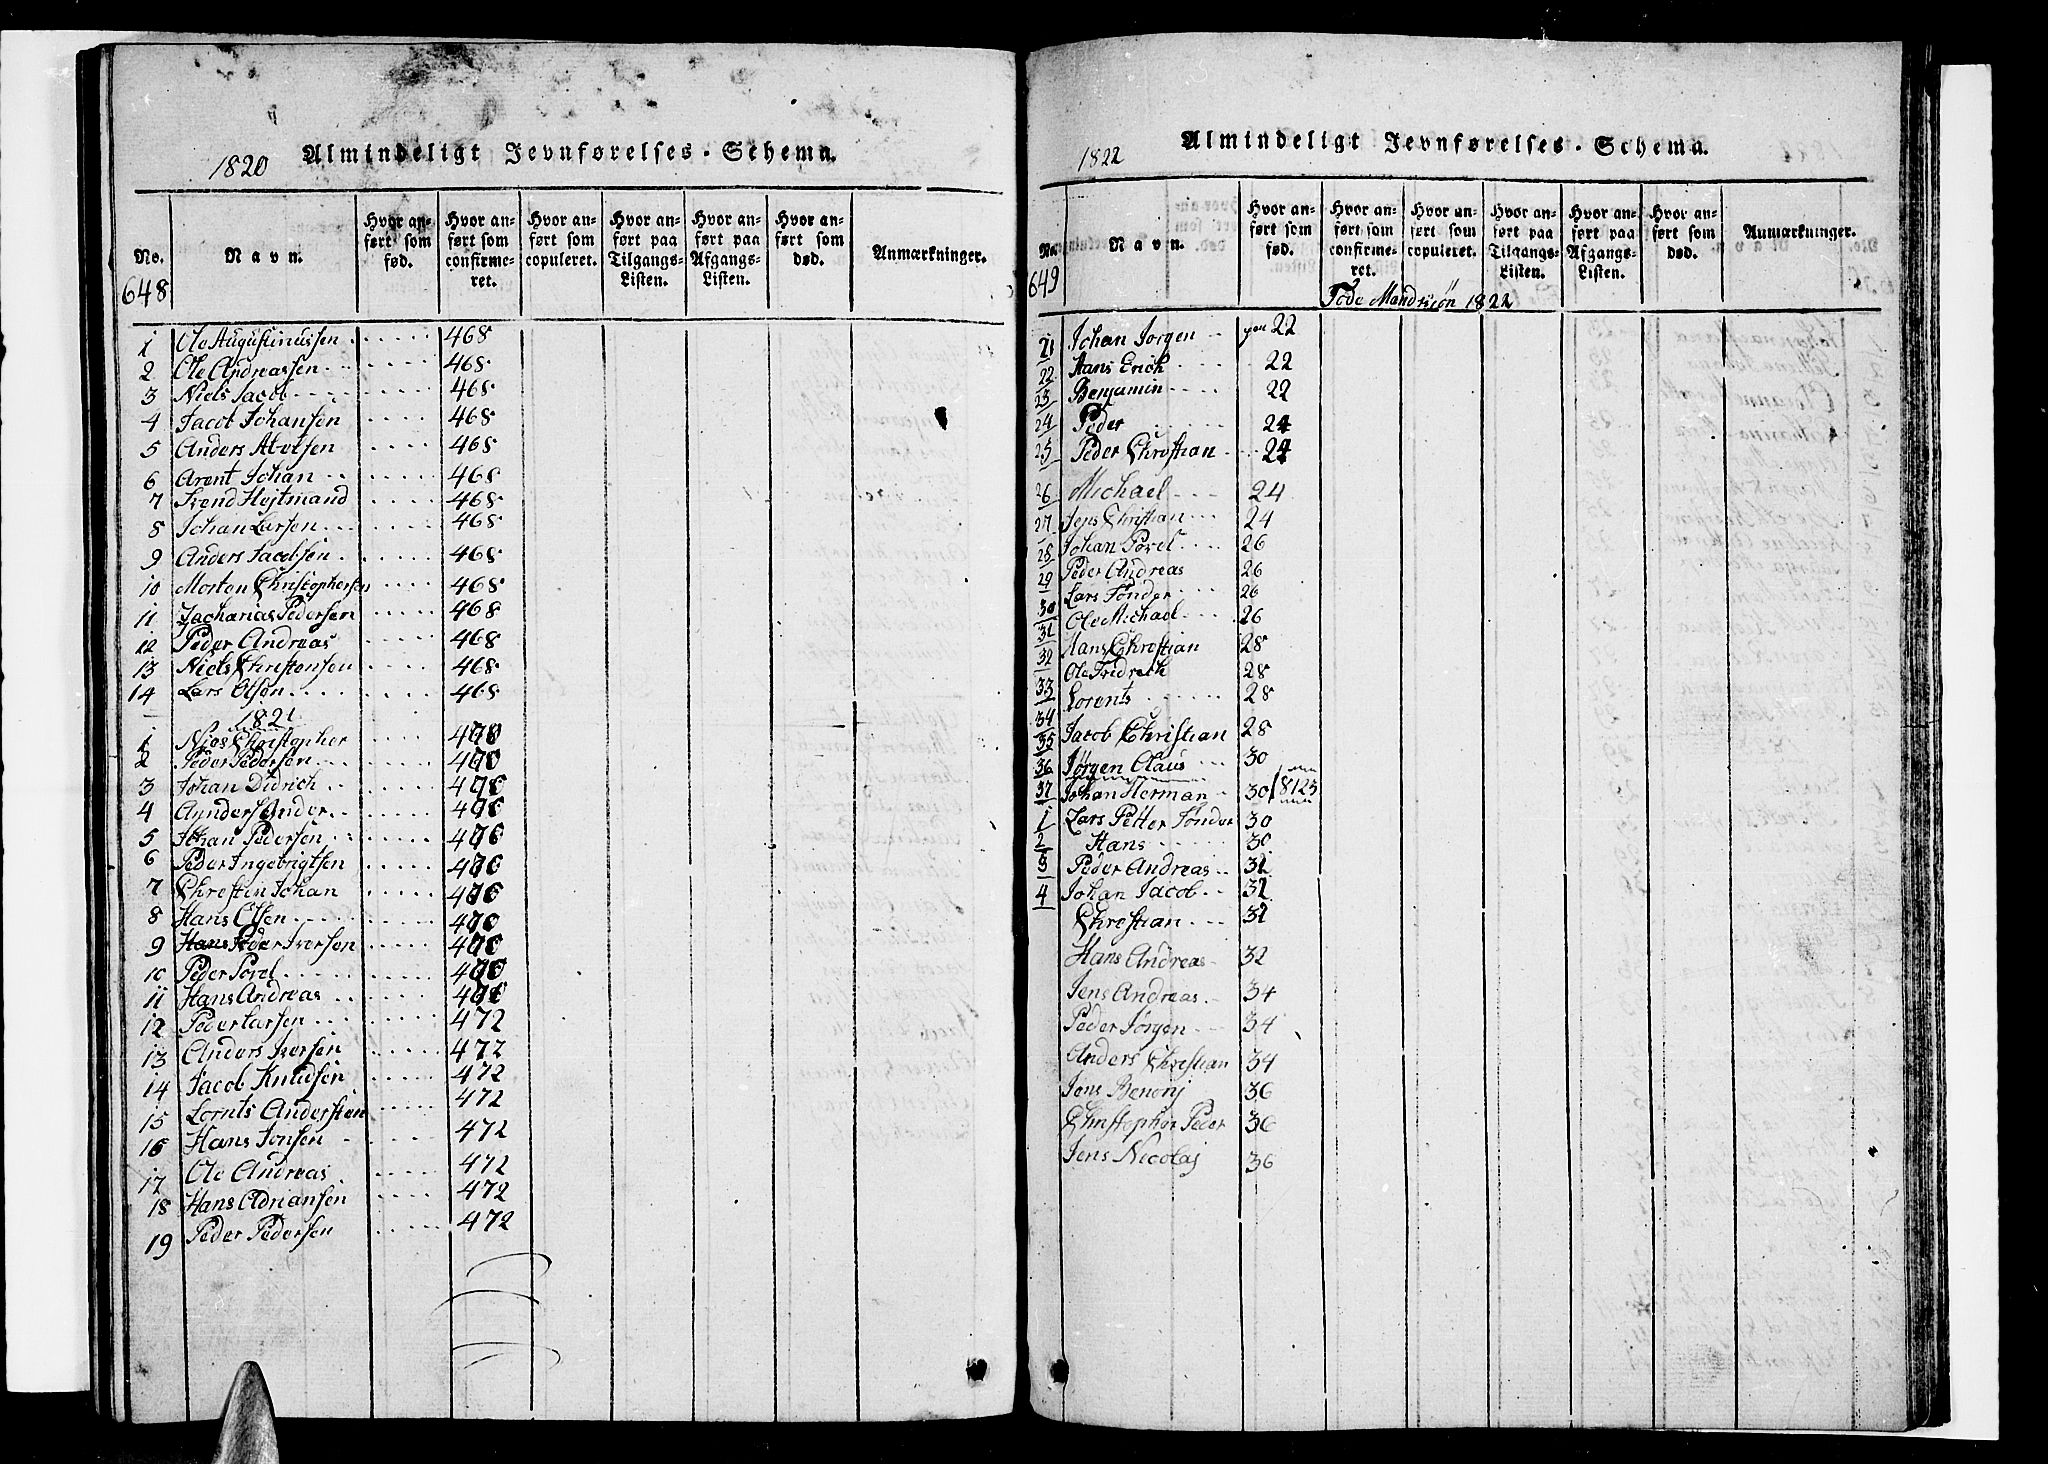 1820 Almindeligt Jevnførelses-Schema.
No. Navn. Hvor anført som fød. Hvor anført som confirmeret. Hvor anført som copuleret. Hvor anført paa Tilgangs-Listen. Hvor anført paa Afgangs-Listen. Hvor anført som død. Anmærkninger.
648
1 Ole Augustinussen 468
2 Ole Andreassen 468
3 Niels Jacob 468
4 Jacob Johansen 468
5 Anders 468
6 Arent Johan 468
7 Svend Hejtmand 468
8 Johan Larsen 468
9 Anders Jacobsen 468
10 Morten Christophersen 468
11 Zacharias Pedersen 468
12 Peder Andreas 468
13 Niels Christensen 468
14 Lars Olsen 468
1821
1 Christopher
2 Peder Pedersen
3 Johan Didrich
4
5 Johan Pedersen
6 Peder Ingebrigtsen
7 Johan
8 Hans Olsen
9 Peder Iversen
10 Peder Povel
11 Hans Andreas
12 Peder Larsen 472
13 Anders Iversen 472
14 Jacob Knudsen 472
15 Lornts 472
16 Hans Jonsen 472
17 Ole Andreas 472
18 Hans Adriansen 472
19 Peder Pedersen 472
1822 Almindeligt Jevnførelses-Schema.
No. Navn. Hvor anført som fød. Hvor anført som confirmeret. Hvor anført som copuleret. Hvor anført paa Tilgangs-Listen. Hvor anført paa Afgangs-Listen. Hvor anført som død. Anmærkninger.
649 Føde Mandkjön 1822
21 Johan Jørgen 22
22 Hans Erick 22
23 Benjamin 22
24 Peder 24
25 Peder Christian 24
26 Michael 24
27 Jens Christian 24
28 Johan Povel 26
29 Peder Andreas 26
30 Lars Tønder 26
31 Ole Michael 26
32 Hans Christian 28
33 Ole Fridrech 28
34 Lorents 28
35 Jacob Christian 28
36 Jørgen Claus 30
37 Johan Herman 30
1 Lars Petter Tønder 30
2 Hans 30
3 Peder Andreas 32
4 Johan Jacob 32
Christian 32
Hans Andreas 32
Jens Andreas 34
Peder Jørgen 34
Anders Christian 34
Jens Benonj 36
Christopher Peder 36
Jens Nicolaj 36